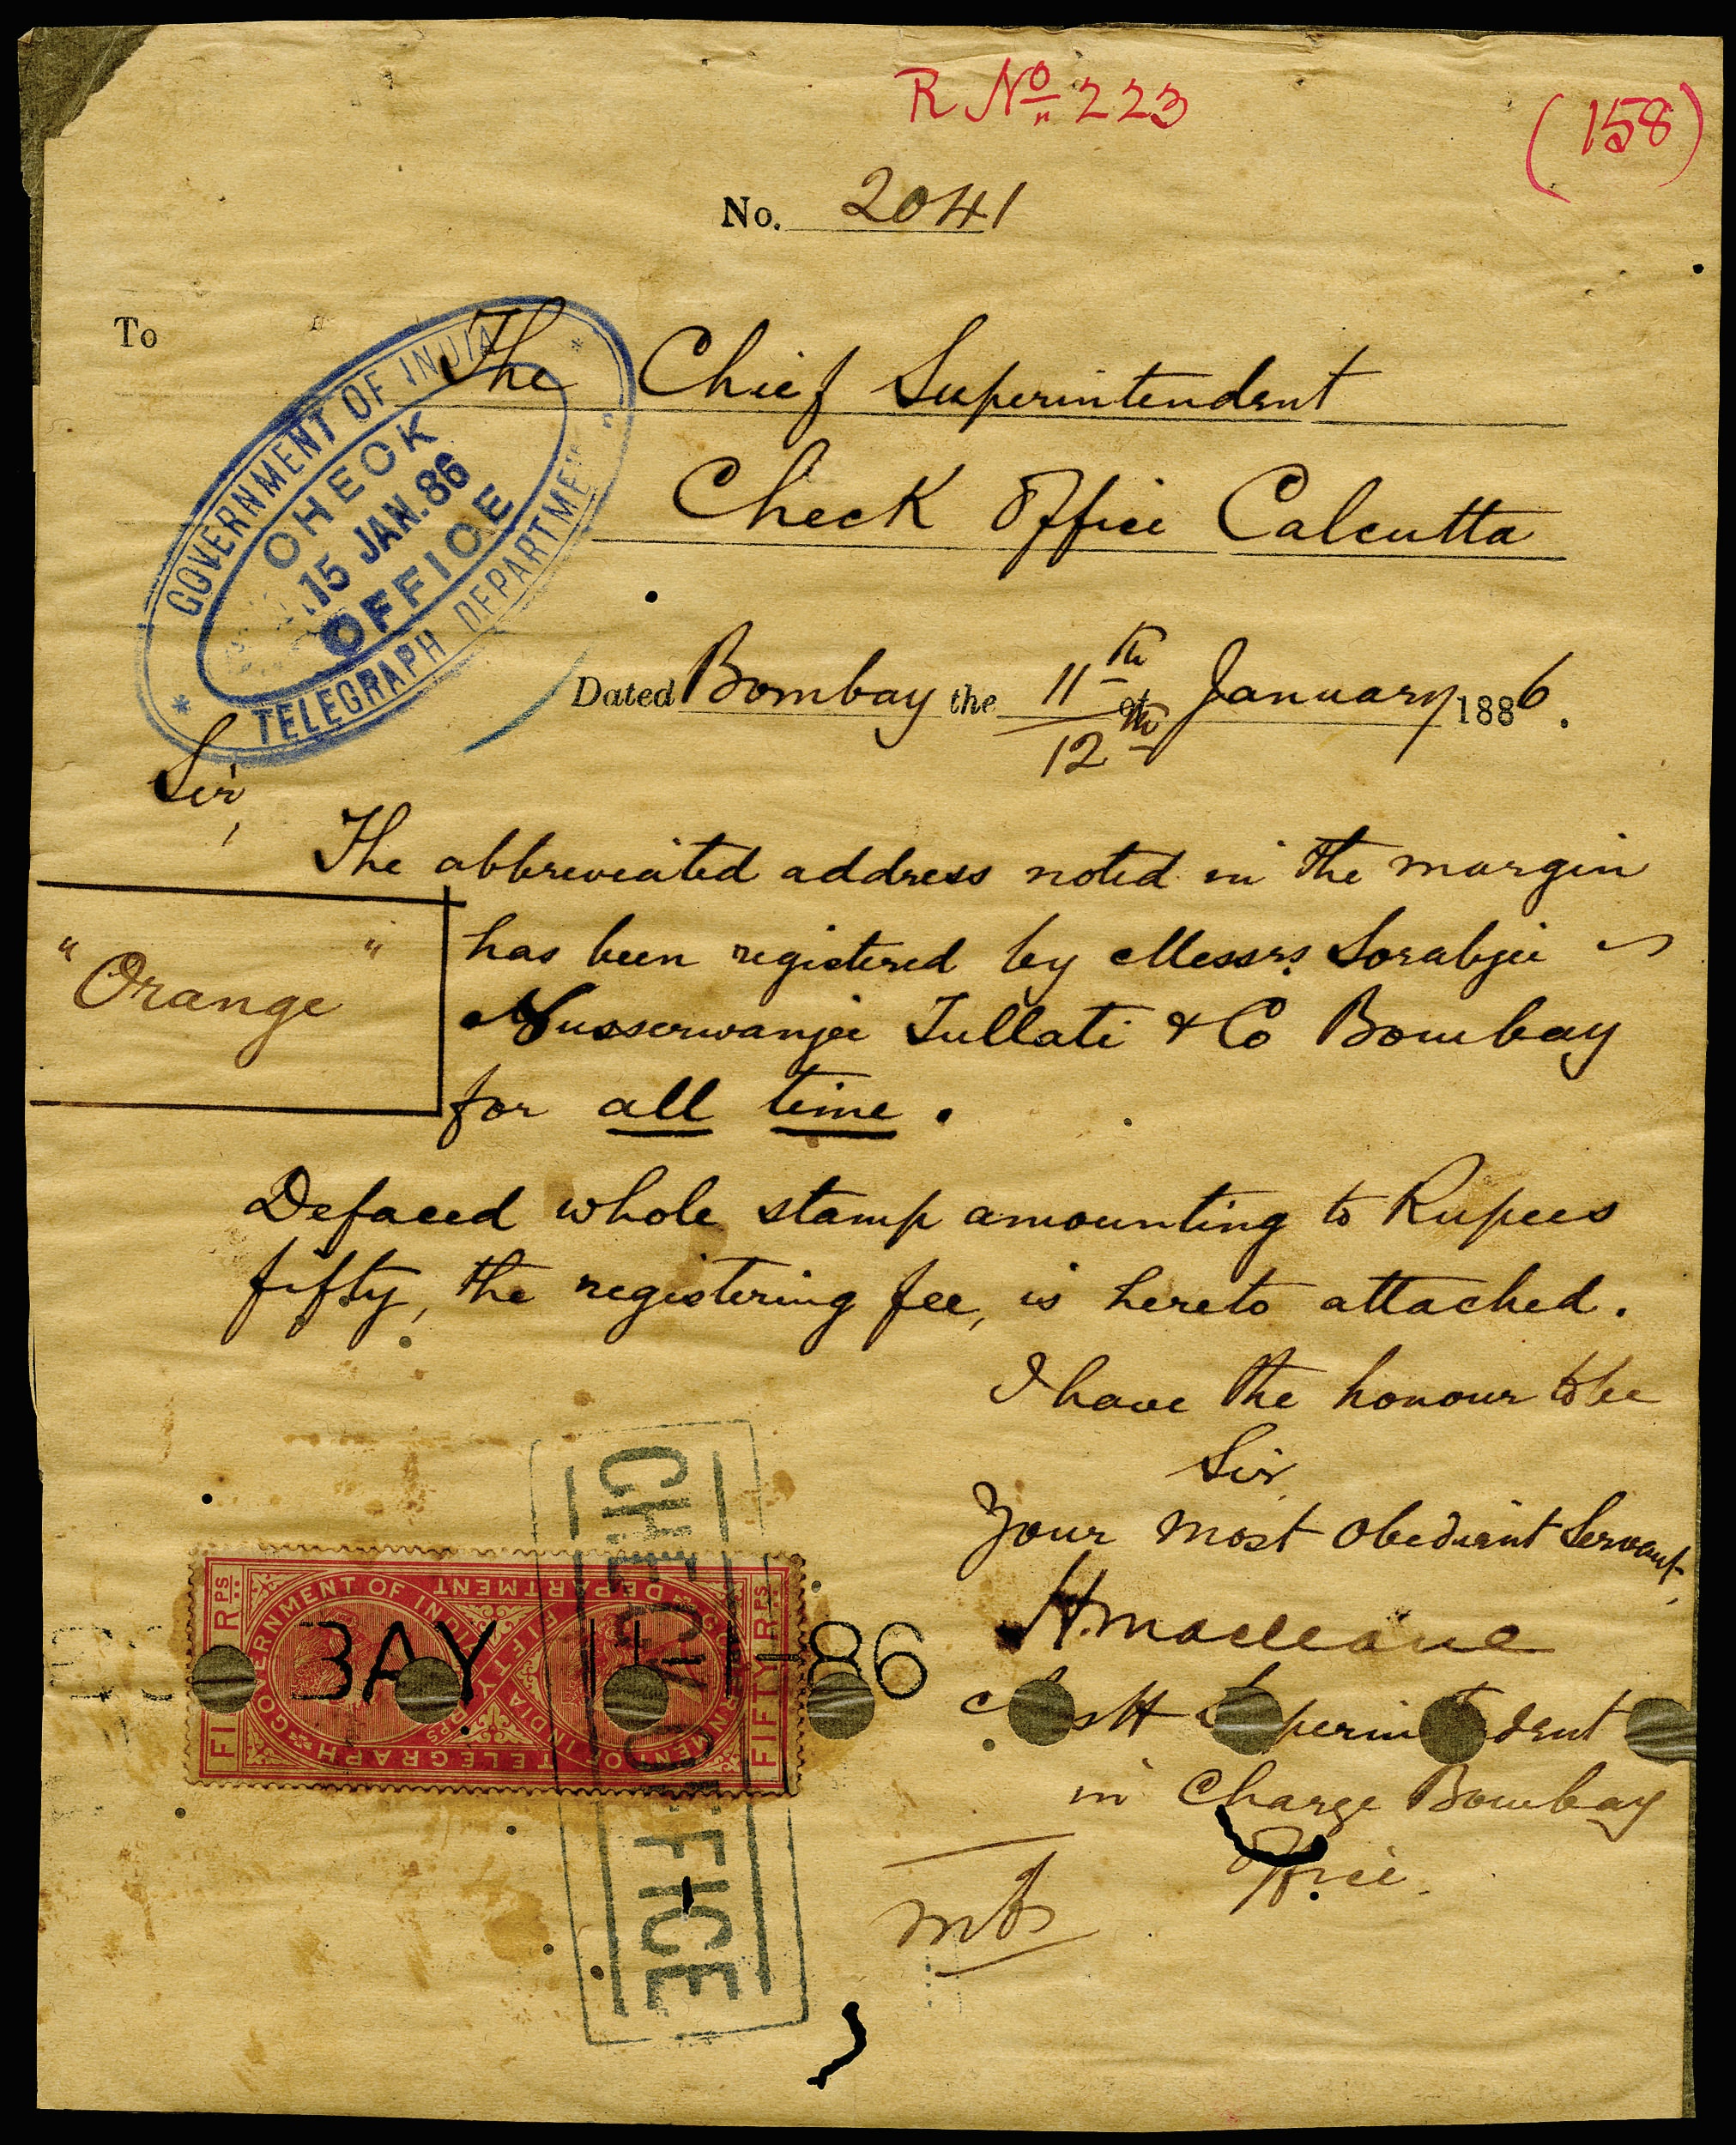 R No 223
(158)
No. 2041
To
The Chief Superintendent
Check Office Calcutta
GOVERNMENT OF INDIA
CHECK
15 JAN. 86
OFFICE
TELEGRAPH DEPARTMENT
Dated Bombay the 11th January 1886.
12th
Sir,
The abbreviated address noted in the margin
"Orange"
has been registered by Messrs. Sorabjee
Nusserwanjee Tullati & Co Bombay
for all time.
Defaced whole stamp amounting to Rupees
fifty, the registering fee, is hereto attached.
I have the honour to be
Sir,
Your most obedient Servant,
Asstt Superintendent
in Charge Bombay
Office.
CHECK OFFICE
BAY 11-1-86
GOVERNMENT OF INDIA
TELEGRAPH DEPARTMENT
FIFTY RPS
FIFTY RPS.